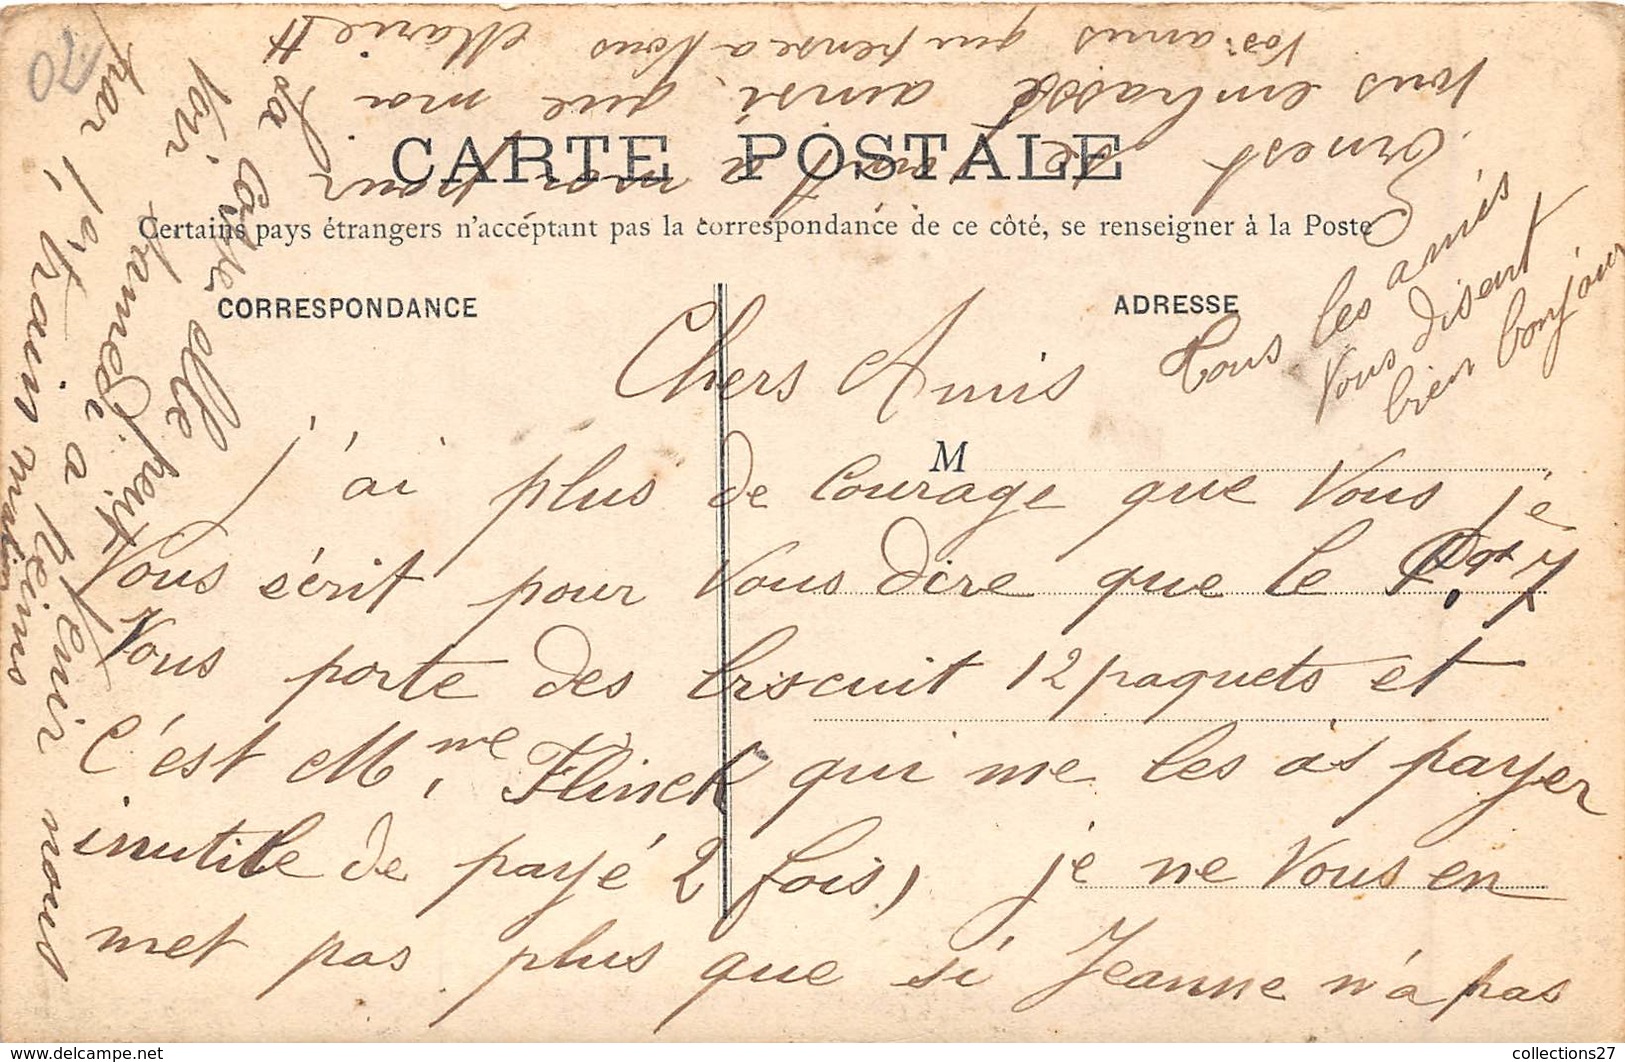 CARTE POSTALE
Certains pays étrangers n'acceptent pas la correspondance de ce côté, se renseigner à la Poste
CORRESPONDANCE
ADRESSE
M
Chers Amis
j'ai plus de Courage que Vous je
Vous sérit pour Vous dire que le
Vous porte des biscuit 12 paquets et
C'est Mme Flinck qui me les as payer
inutile de payé 2 fois, je ne Vous en
met pas plus que si Jeanne n'a pas
sa Colique elle peut Venir nous
Voir Samedi a Reims
par le train matin
Ernest se joint a moi pour
Vous embrassé ainsi que moi
Vos amis qui pense a Vous Marie H
Tous les amis
Vous disent
bien bonjour
20
www.delcampe.net
collections27